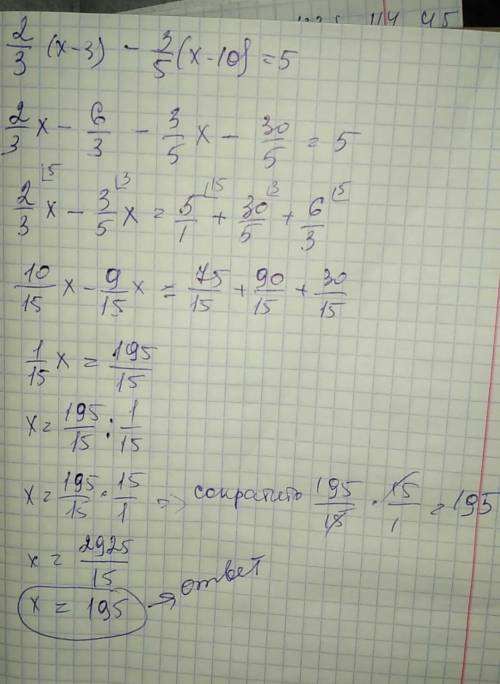 2/3 (x-3) - 3/5 (x-10) = 5
2/3 x - 6/3 - 3/5 x - 30/5 = 5
2/3⌊5 x - 3/5⌊3 x = 5/1⌊15 + 30/5⌊3 + 6/3⌊5
10/15 x - 9/15 x = 75/15 + 90/15 + 30/15
1/15 x = 195/15
x = 195/15 : 1/15
x = 195/15 · 15/1 -> сократить 195/15 · 15/1 = 195
x = 2925/15
x = 195 -> ответ